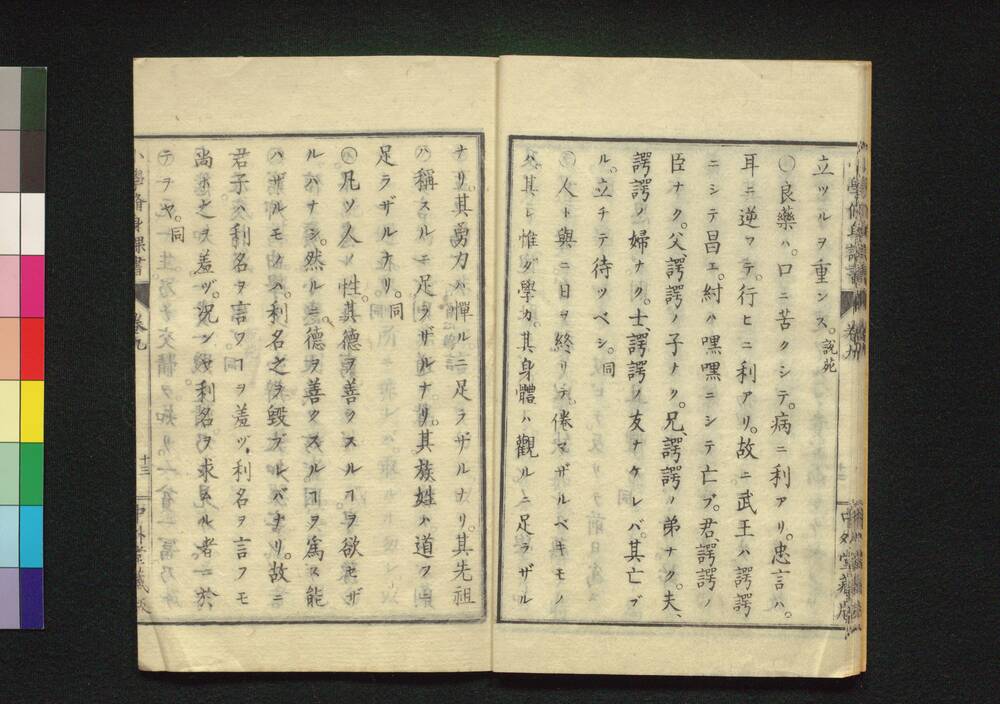 立ツルヲ重ンス。說苑
○良藥ハ。口ニ苦クシテ。病ニ利アリ。忠言ハ。
耳ニ逆フテ。行ヒニ利アリ。故ニ武王ハ諤諤
ニシテ昌エ。紂ハ嘿嘿ニシテ亡ブ。君、諤諤ノ
臣ナク。父、諤諤ノ子ナク。兄、諤諤ノ弟ナク。夫、
諤諤ノ婦ナク。士、諤諤ノ友ナケレバ。其亡ブ
ル。立チテ待ツベシ。同
○人ト與ニ日ヲ終リテ。倦マザルベキモノ
ハ。其レ惟ダ學カ。其身體ハ觀ルニ足ラザル
ナリ。其勇力ハ憚ルニ足ラザルナリ。其先祖
ハ稱スルニ足ラザルナリ。其族姓ハ道フニ
足ラザルナリ。同
○凡ソ人ノ性。其德ヲ善クスルヿヲ欲セザ
ルハナシ。然ルニ。德ヲ善クスルヿヲ爲ス能
ハザルモノハ。利名之ヲ毀ブルバナリ。故ニ
君子ハ利名ヲ言フヿヲ羞ヅ。利名ヲ言フモ
尚ホ之ヲ羞ヅ。況ンヤ利名ヲ求ムル者ニ於
テヲヤ。同
小學脩身課書 卷九 十三 中外堂藏版